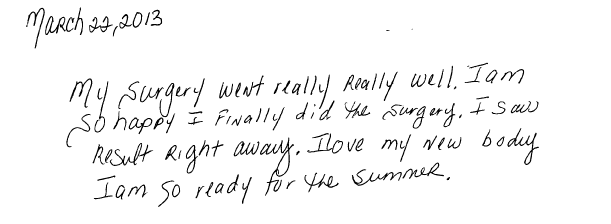 March 22, 2013
My surgery went really Really well. I am
so happy I Finally did the surgery. I saw
Result Right away. I love my New body
I am so ready for the summer.